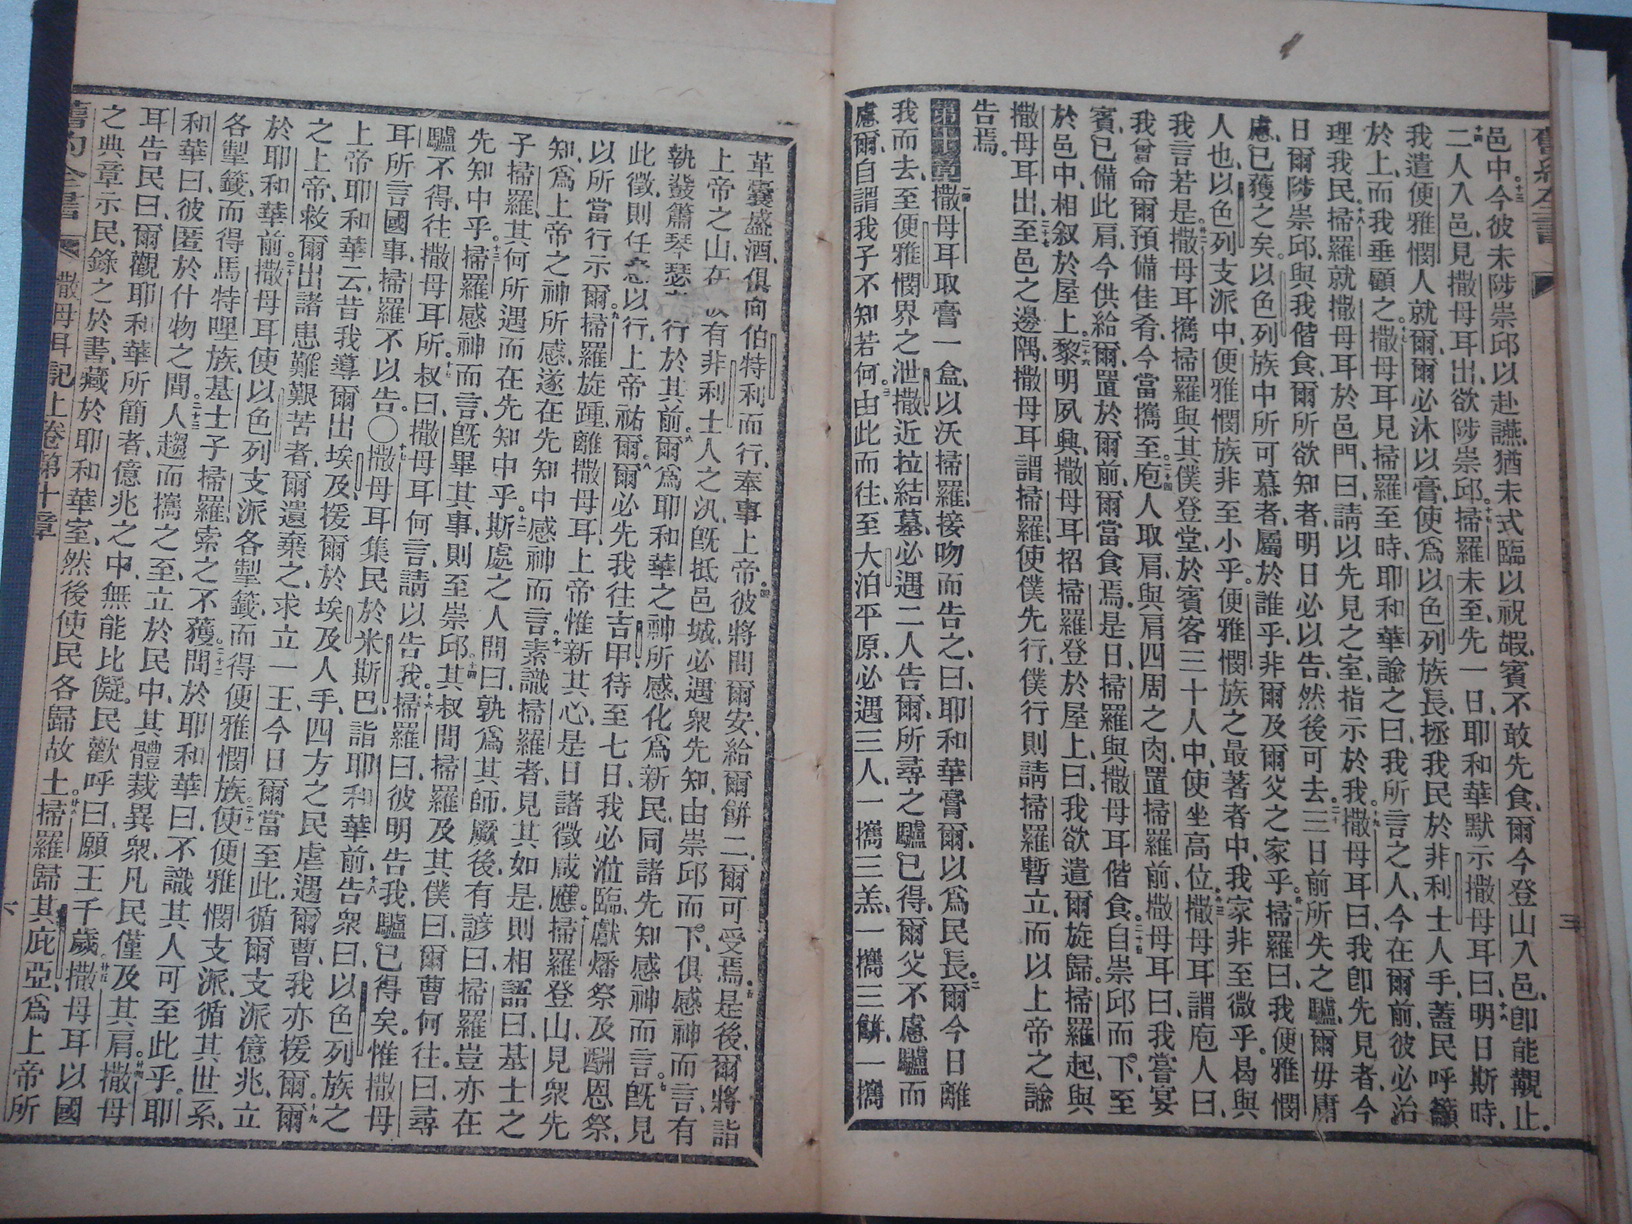 邑中、十三今彼未陟崇邱以赴讌、猶未式臨以祝嘏、賓不敢先食、爾今登山入邑、卽能覯止。
十四二人入邑、見撒母耳出、欲陟崇邱。十五掃羅未至先一日、耶和華默示撒母耳曰、十六明日斯時、
我遣便雅憫人就爾、爾必沐以膏、使爲以色列族長、拯我民於非利士人手、蓋民呼籲
於上、而我垂顧之。十七撒母耳見掃羅至時、耶和華諭之曰、我所言之人、今在爾前、彼必治
理我民。十八掃羅就撒母耳於邑門、曰、請以先見之室、指示於我。十九撒母耳曰、我卽先見者、今
日爾陟崇邱、與我偕食、爾所欲知者、明日必以告、然後可去。二十三日前所失之驢、爾毋庸
慮、已獲之矣。以色列族中所可慕者、屬於誰乎、非爾及爾父之家乎。掃羅曰、我便雅憫
人也、以色列支派中、便雅憫族非至小乎。便雅憫族之最著者中、我家非至微乎。曷與
我言若是。撒母耳攜掃羅與其僕登堂、於賓客三十人中、使坐高位。撒母耳謂庖人曰、
我曾命爾預備佳肴、今當攜至。二十四庖人取肩、與肩四周之肉、置掃羅前、撒母耳曰、我嘗宴
賓、已備此肩、今供給爾、置於爾前、爾當食焉。是日掃羅與撒母耳偕食。二十五自崇邱而下、至
於邑中、相叙於屋上。二十六黎明夙興、撒母耳招掃羅登於屋上、曰、我欲遣爾旋歸。掃羅起、與
撒母耳出。二十七至邑之邊隅、撒母耳謂掃羅、使僕先行、僕行則請掃羅暫立、而以上帝之諭
告焉。
第十章 一撒母耳取膏一盒、以沃掃羅、接吻而告之曰、耶和華膏爾、以爲民長。二爾今日離
我而去、至便雅憫界之泄撒、近拉結墓、必遇二人、告爾所尋之驢已得、爾父不慮驢而
慮爾、自謂我子不知若何。三由此而往、至大泊平原、必遇三人、一攜三羔、一攜三餅、一攜
革囊盛酒、俱向伯特利而行、奉事上帝。四彼將問爾安、給爾餅二、爾可受焉。五是後爾將詣
上帝之山、有非利士人之汛、旣抵邑城、必遇衆先知、由崇邱而下、俱感神而言、有
執鼗簫琴瑟行於其前、六爾爲耶和華之神所感、化爲新民、同諸先知感神而言。七旣見
此徵、則任意以行、上帝祐爾。八爾必先我往吉甲、待至七日、我必涖臨、獻燔祭及酬恩祭、
以所當行示爾。九掃羅旋踵、離撒母耳、上帝惟新其心、是日諸徵咸應。十掃羅登山、見衆先
知、爲上帝之神所感、遂在先知中感神而言。十一素識掃羅者見其如是、則相語曰、基士之
子掃羅、其何所遇而在先知中乎。十二斯處之人問曰、孰爲其師、厥後有諺曰、掃羅豈亦在
先知中乎。十三掃羅感神而言、旣畢其事、則至崇邱。十四其叔問掃羅及其僕曰、爾曹何往、曰、尋
驢不得、往撒母耳所。十五叔曰、撒母耳何言、請以告我。十六掃羅曰、彼明告我、驢已得矣。惟撒母
耳所言國事、掃羅不以告。〇十七撒母耳集民於米斯巴、詣耶和華前、十八告衆曰、以色列族之
上帝耶和華云、昔我導爾出埃及、援爾於埃及人手、四方之民虐遇爾曹、我亦援爾。十九爾
之上帝、救爾出諸患難艱苦者、爾遺棄之、求立一王、今日爾當至此、循爾支派億兆、立
於耶和華前。二十撒母耳使以色列支派各掣籤、而得便雅憫族。二十一使便雅憫支派、循其世系、
各掣籤、而得馬特哩族、基士子掃羅、索之不獲。二十二問於耶和華曰、不識其人可至此乎。耶
和華曰、彼匿於什物之間。二十三人趨而攜之至、立於民中、其體裁異衆、凡民僅及其肩。廿四撒母
耳告民曰、爾觀耶和華所簡者、億兆之中、無能比儗。民歡呼曰、願王千歲。廿五撒母耳以國
之典章示民、錄之於書、藏於耶和華室、然後使民各歸故土。廿六掃羅歸其庇亞、爲上帝所
舊約全書 撒母耳記上卷第十章 六